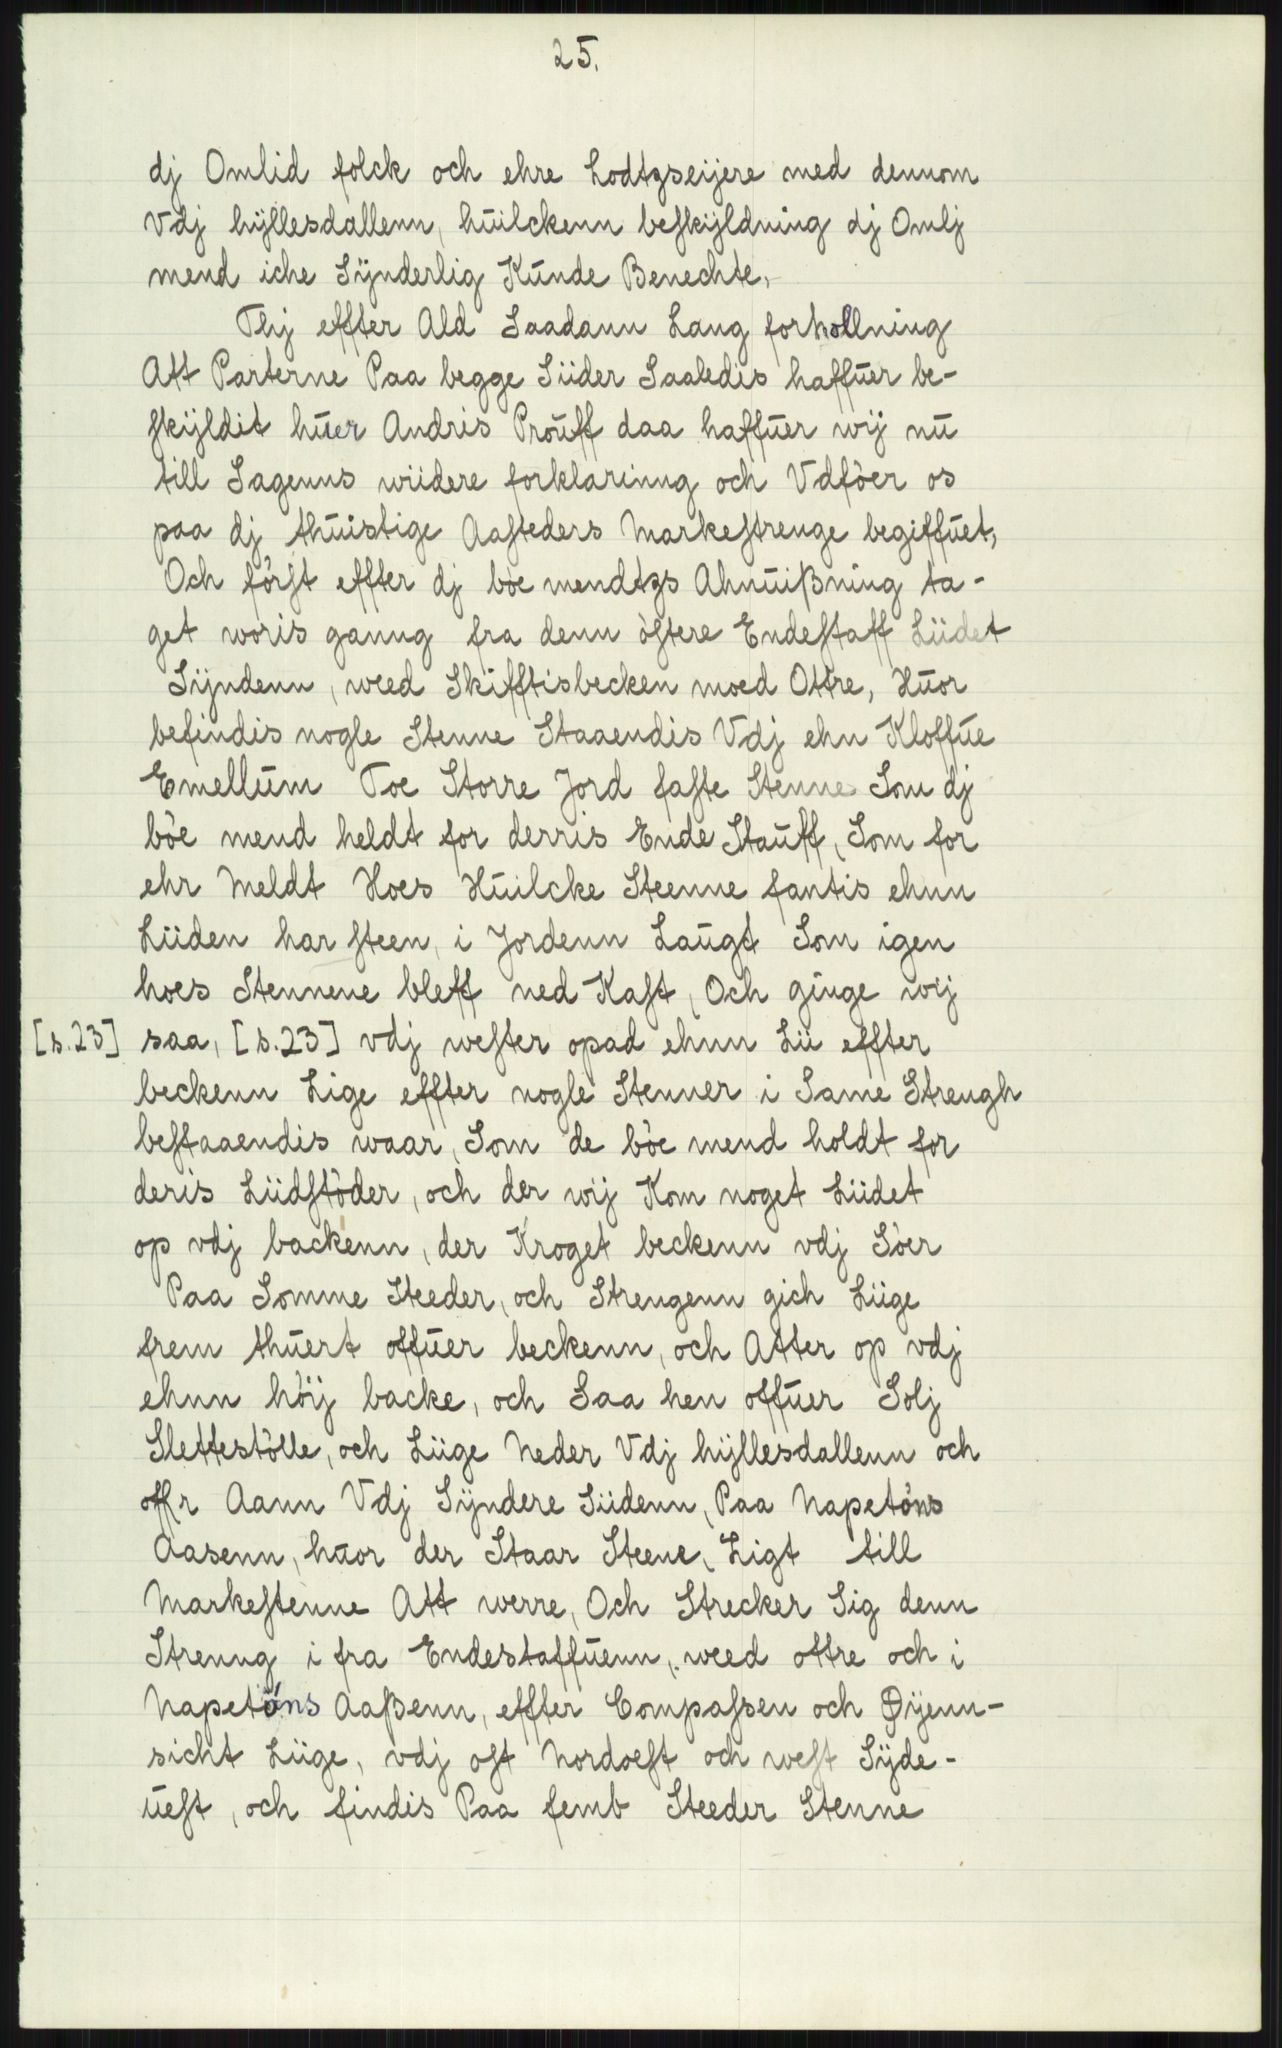 25.
dj Omlid folck och ehre Lodtzseijere med dennom
Vdj hÿllesdallenn, huilckenn beskÿldning dj Omlj
mend iche Sÿnderlig Kunde Benechte,
Thj effter Ald Saadann Lang forhollning
Att Parterne Paa begge Siider Saaledis haffuer be-
skÿldit huer Andris Prouff daa haffuer wij nu
till Sagenns wiidere forklarinng och Vdføer os
paa dj thuistige Aasteders Markestrenge begiffuet,
Och først effter dj bøe mendtzs Ahnuißning ta-
get woris ganng fra denn østere Endestaff Liidet
Sÿndenn, weed Skifftisbecken moed Ottre, Huor
befindis nogle Stenne Staaendis Vdj ehn Kloffue
Emellum Toe Storre Jord faste Stenne Som dj
bøe mend heldt for derris Ende Stauff, Som for
ehr Meldt Hoes Huilcke Steenne fantis ehnn
Liiden har steen, i Jordenn Laugt Som igen
hoes Stennene bleff ned Kast, Och ginge wij
[s.23] saa, [s.23] vdj wester opad ehnn Lii effter
beckenn Lige effter nogle Stenner i Same Strengh
bestaaendis waar, Som de bøe mend holdt for
deris Liidstøder, och der wij Kom noget Liidet
op vdj backenn, der Kroget beckenn vdj Søer
Paa Somme Steeder, och Strengenn gich Liige
frem thuert offuer beckenn, och Atter op vdj
ehnn høij backe, och Saa hen offuer Solj
Slettestølle, och Liige Neder Vdj hÿllesdallenn och
offr Aann Vdj Sÿndere Siidenn, Paa Napetøns
Aasenn, huor der Staar Steene, Ligt till
Markestenne Att werre, Och Strecker Sig denn
Strenng i fra Endestaffuenn, weed ottre och i
Napetøns Aaßenn, effter Compassen och Øÿenn-
sicht Liige, vdj ost Nordoest och west Sÿde-
uest, och findis Paa femb Steeder Stenne